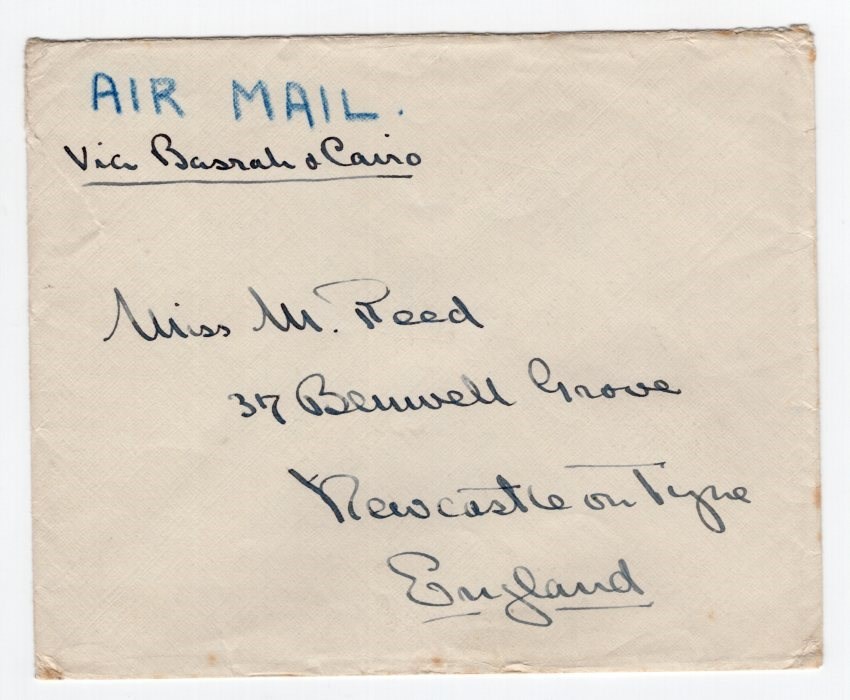 AIR MAIL.
Via Basrah & Cairo
Miss M. Reed
37 Benwell Grove
Newcastle on Tyne
England